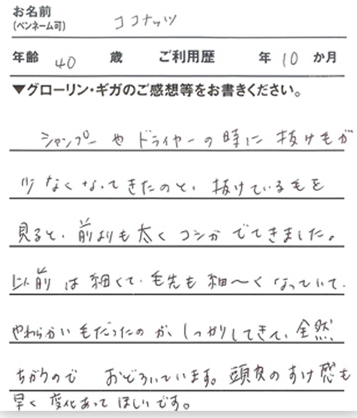 お名前
(ペンネーム可) ココナッツ
年齢 40 歳 ご利用歴 年 10 か月
▼グローリン・ギガのご感想等をお書きください。
シャンプー や ドライヤーの 時に 抜け毛が
少なくなってきたのと、抜けている毛を
見ると、前よりも太くコシがでてきました。
以前は細くて、毛先も細〜くなっていて、
やわらかい毛だったのが、しっかりしてきて、全然
ちがうので おどろいています。頭皮のすけ感も
早く変化あってほしいです。